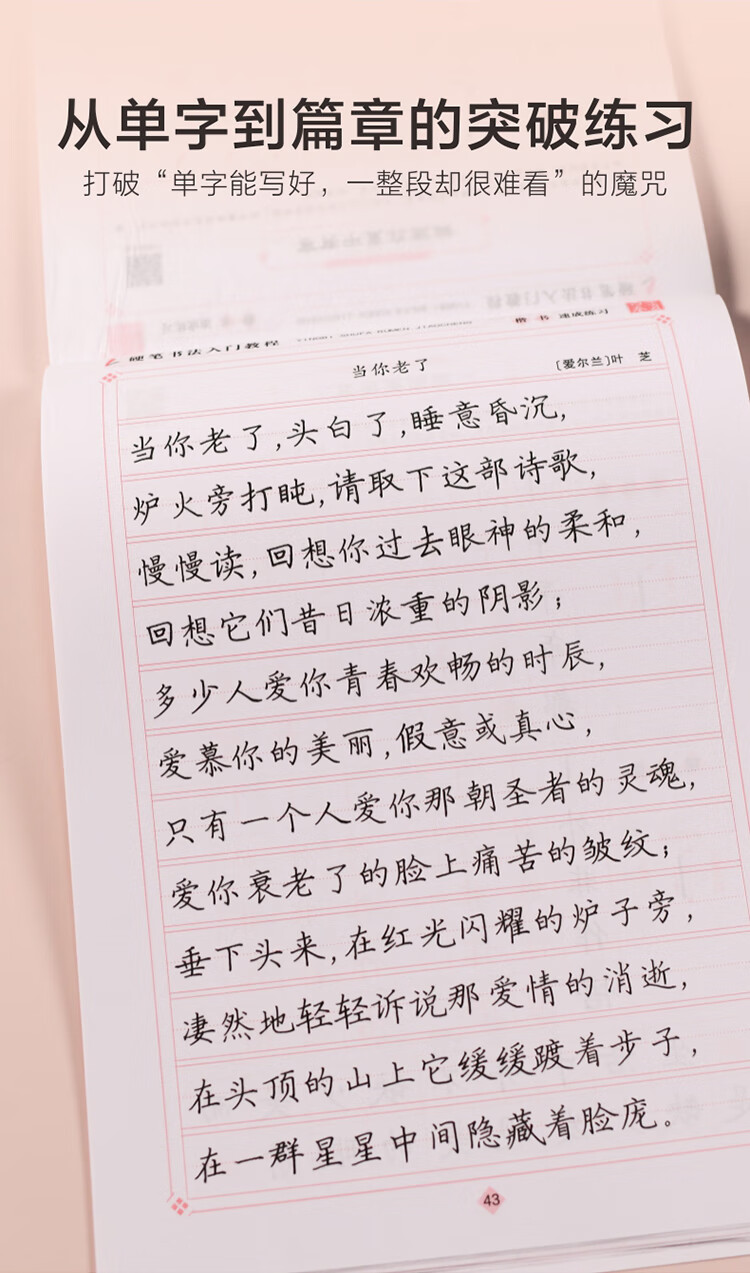 从单字到篇章的突破练习
打破“单字能写好，一整段却很难看”的魔咒
硬笔书法入门教程
楷书 速成练习
当你老了
〔爱尔兰〕叶芝
当你老了,头白了,睡意昏沉,
炉火旁打盹,请取下这部诗歌,
慢慢读,回想你过去眼神的柔和,
回想它们昔日浓重的阴影;
多少人爱你青春欢畅的时辰,
爱慕你的美丽,假意或真心,
只有一个人爱你那朝圣者的灵魂,
爱你衰老了的脸上痛苦的皱纹;
垂下头来,在红光闪耀的炉子旁,
凄然地轻轻诉说那爱情的消逝,
在头顶的山上它缓缓踱着步子,
在一群星星中间隐藏着脸庞。
43